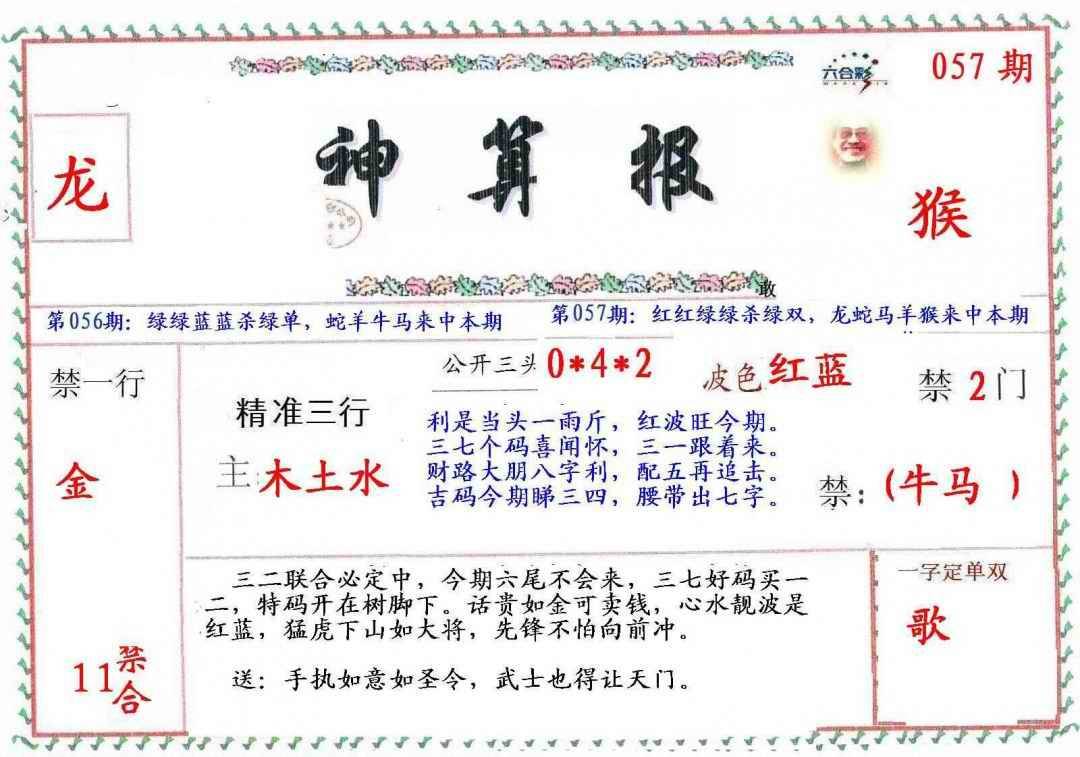 六合彩
057 期
龙
神算报
猴
敢
第056期：绿绿蓝蓝杀绿单，蛇羊牛马来中本期
第057期：红红绿绿杀绿双，龙蛇马羊猴来中本期
禁一行
金
11禁合
精准三行
主:木土水
公开三头0*4*2
波色红蓝
禁2门
利是当头一雨斤，红波旺今期。
三七个码喜闻怀，三一跟着来。
财路大朋八字利，配五再追击。
吉码今期睇三四，腰带出七字。
禁：(牛马 )
三二联合必定中，今期六尾不会来，三七好码买一
二，特码开在树脚下。话贵如金可卖钱，心水靓波是
红蓝，猛虎下山如大将，先锋不怕向前冲。
送：手执如意如圣令，武士也得让天门。
一字定单双
歌